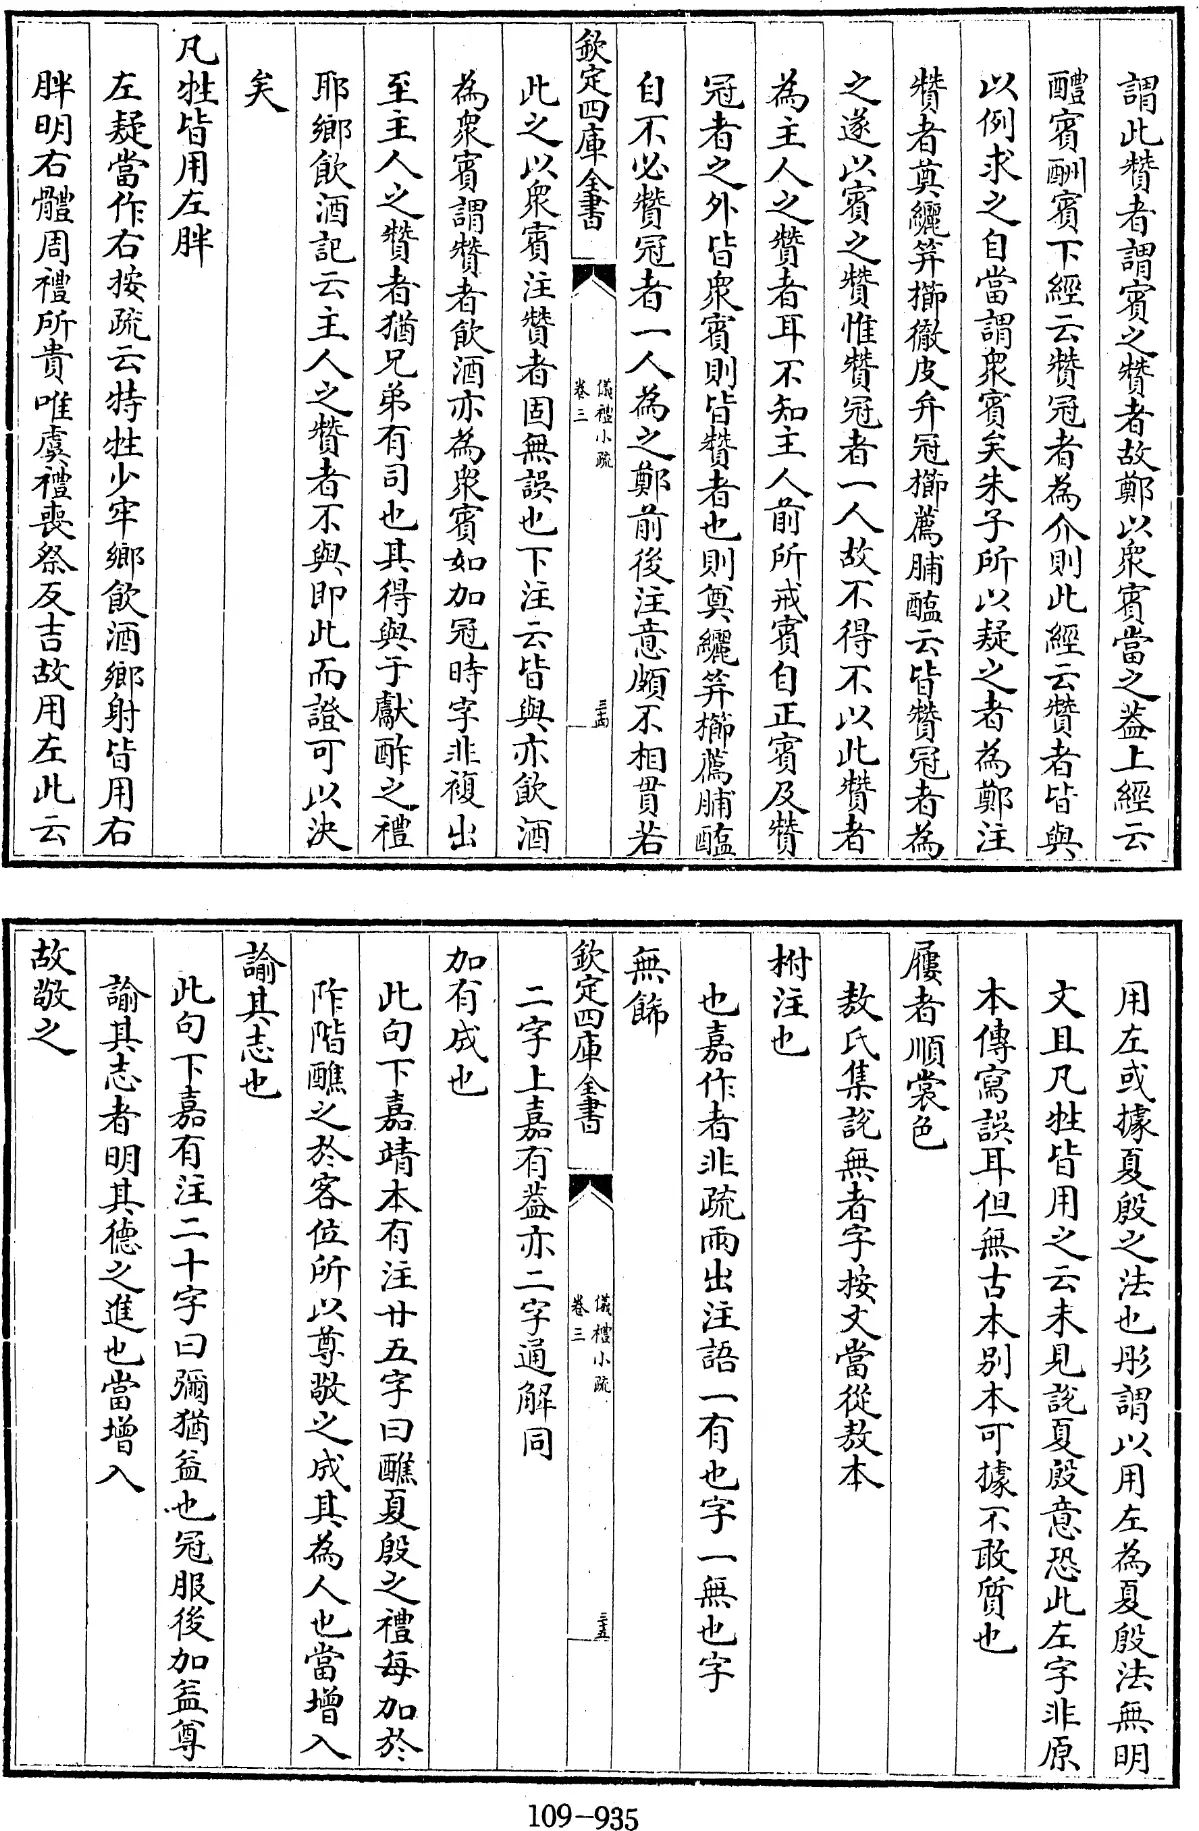 謂此贊者謂賓之贊者故鄭以衆賓當之葢上經云
醴賓酬賓下經云贊冠者為介則此經云贊者皆與
以例求之自當謂衆賓矣朱子所以疑之者為鄭注
贊者奠纚笄櫛徹皮弁冠櫛薦脯醢云皆贊冠者為
之遂以賓之贊惟贊冠者一人故不得不以此贊者
為主人之贊者耳不知主人前所戒賓自正賓及贊
冠者之外皆衆賓則皆贊者也則奠纚笄櫛薦脯醢
自不必贊冠者一人為之鄭前後注意頗不相貫若
欽定四庫全書
儀禮小疏
卷三
三四
此之以衆賓注贊者固無誤也下注云皆與亦飲酒
為衆賓謂贊者飲酒亦為衆賓如加冠時字非複出
至主人之贊者猶兄弟有司也其得與于獻酢之禮
耶鄉飲酒記云主人之贊者不與即此而證可以決
矣
凡牲皆用左胖
左疑當作右按疏云特牲少牢鄉飲酒鄉射皆用右
胖明右體周禮所貴唯虞禮喪祭反吉故用左此云
用左或據夏殷之法也彤謂以用左為夏殷法無明
文且凡牲皆用之云未見說夏殷意恐此左字非原
本傳寫誤耳但無古本別本可據不敢質也
屨者順裳色
敖氏集説無者字按文當從敖本
柎注也
也嘉作者非疏兩出注語一有也字一無也字
無餙
欽定四庫全書
儀禮小疏
卷三
三五
二字上嘉有葢亦二字通解同
加有成也
此句下嘉靖本有注廿五字曰醮夏殷之禮每加於
阼階醮之於客位所以尊敬之成其為人也當增入
諭其志也
此句下嘉有注二十字曰彌猶益也冠服後加益尊
諭其志者明其德之進也當增入
故敬之
109-935